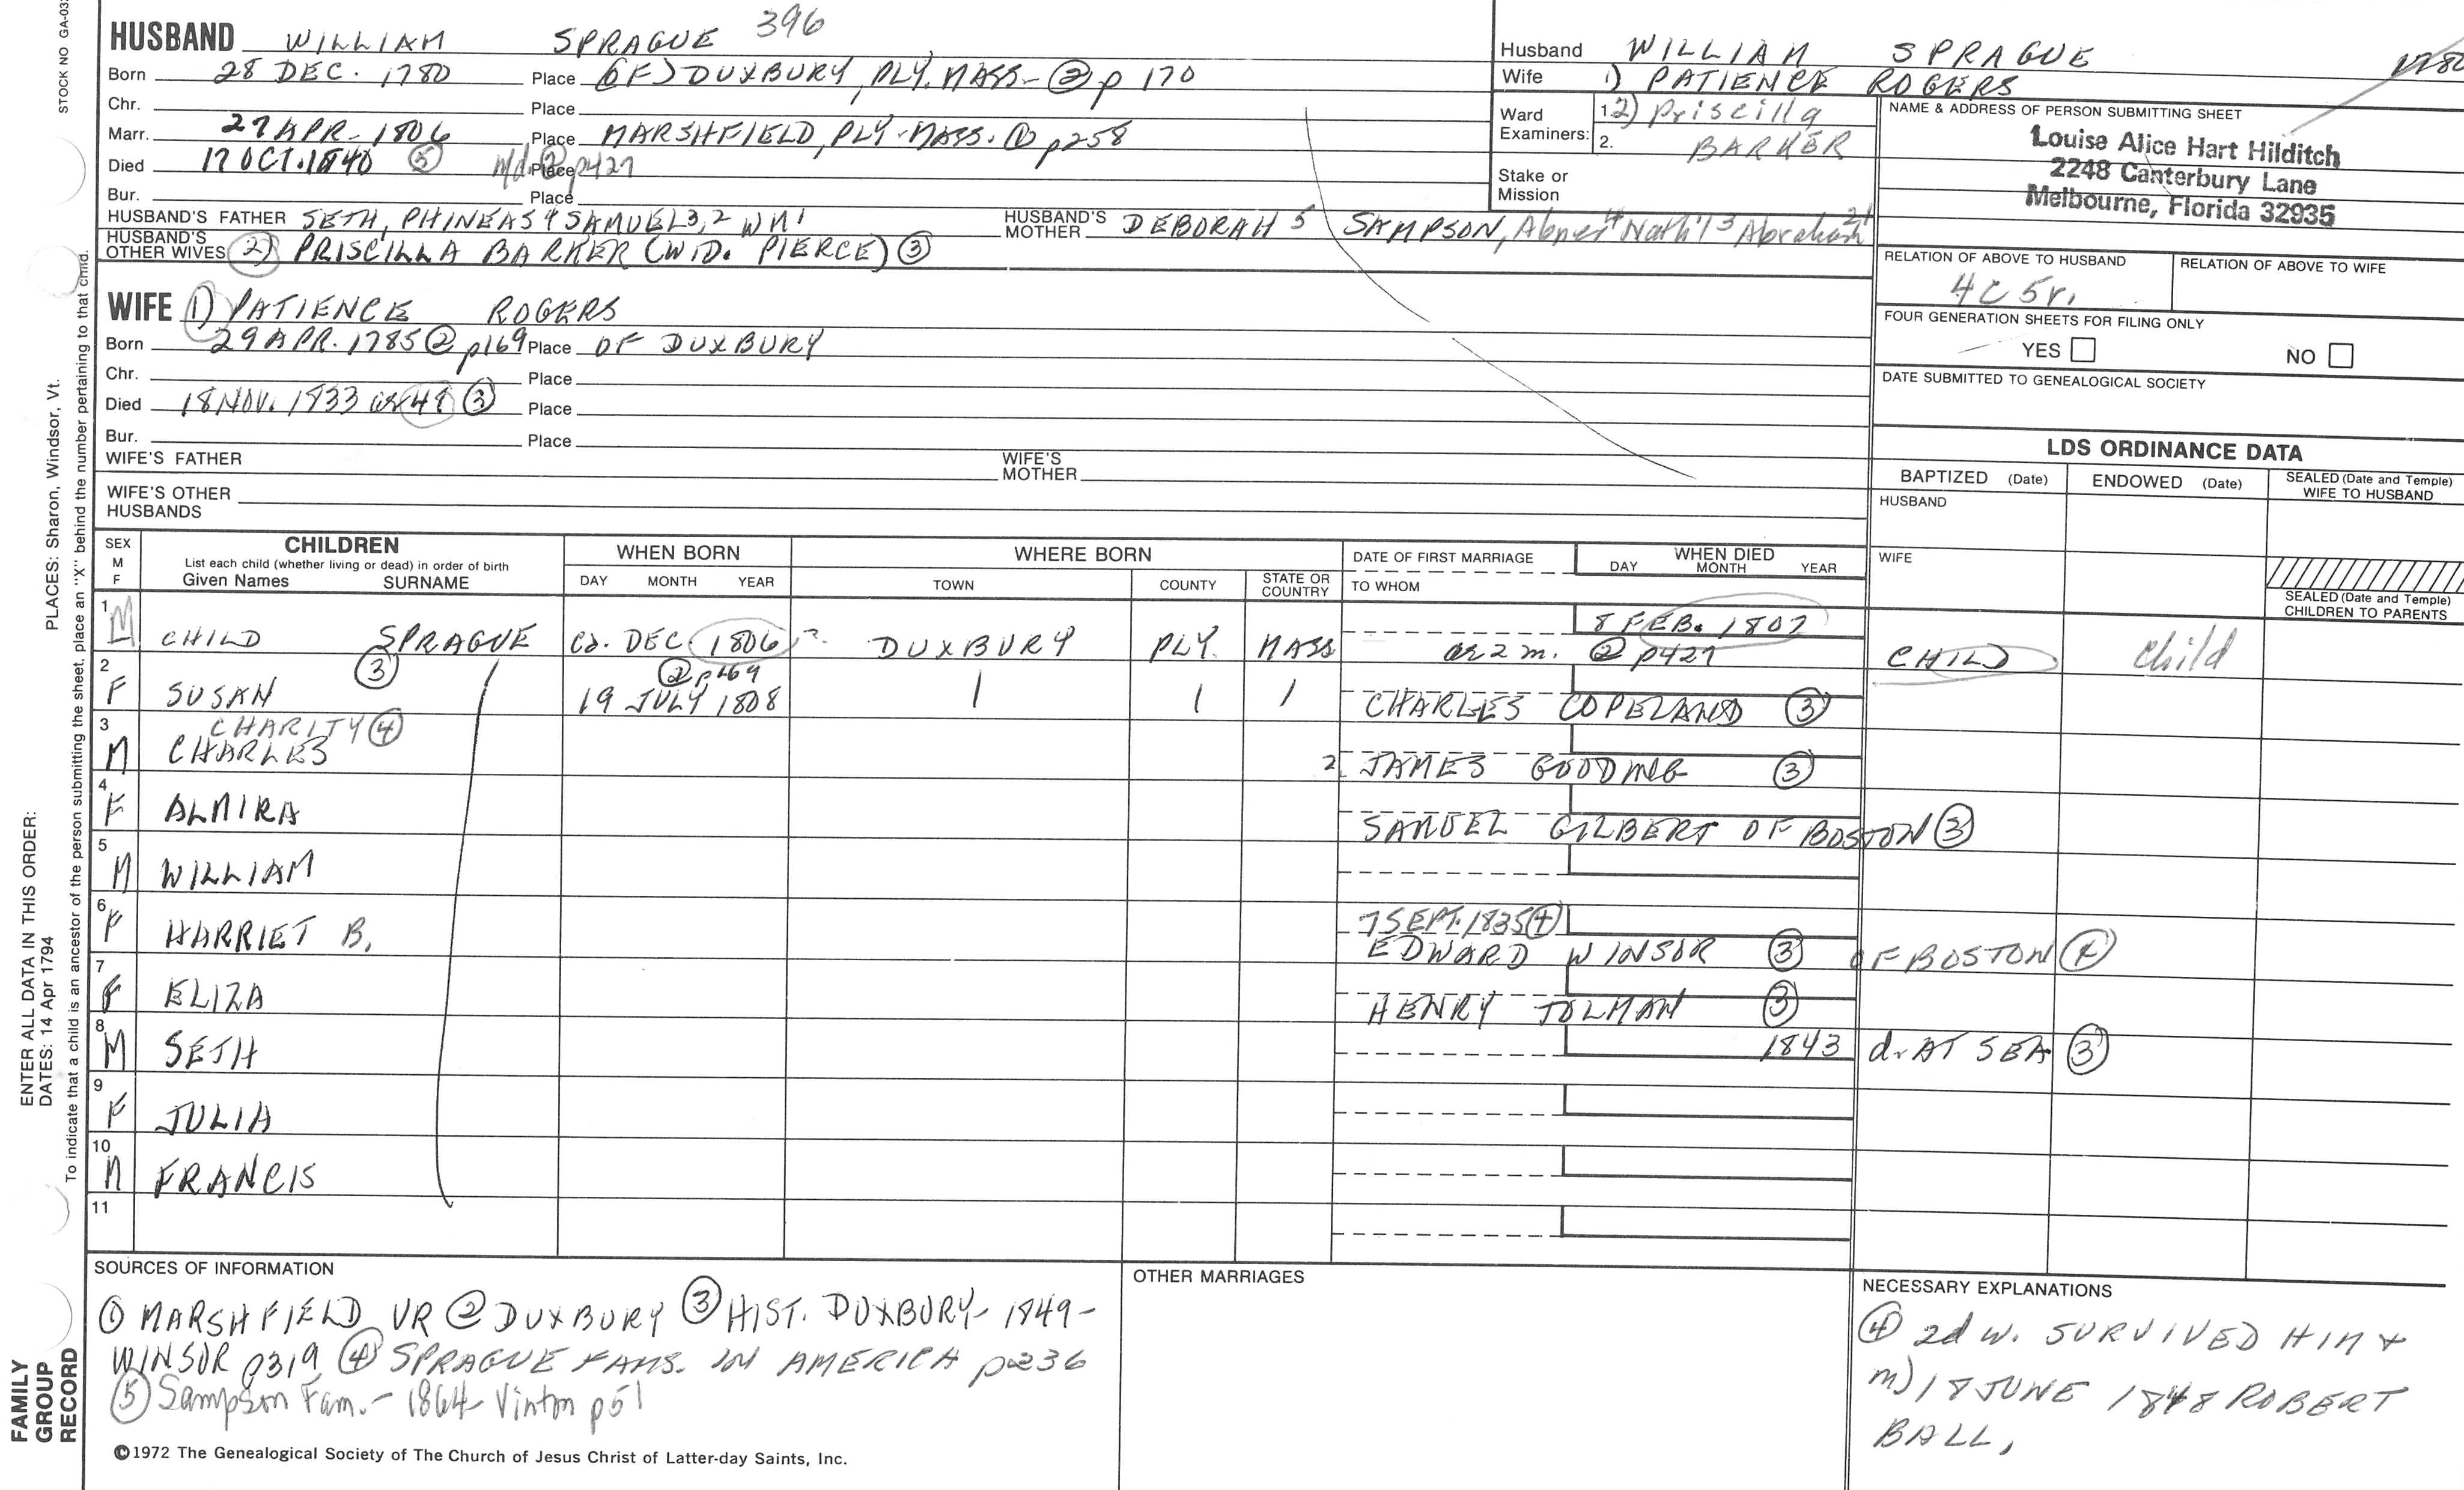 STOCK NO GA-03
396
HUSBAND WILLIAM SPRAGUE
Born 28 DEC. 1780 Place (OF) DUXBURY, PLY. MASS- ② p 170
Chr. Place
Marr. 27 APR- 1806 Place MARSHFIELD, PLY-MASS. ① p258
Died 17 OCT. 1840 ⑤ Place ② p427
Bur. Place
HUSBAND'S FATHER SETH, PHINEAS 4 SAMUEL 3, 2 WM 1 HUSBAND'S MOTHER DEBORAH 5 SAMPSON, Abner 4 Nath'l 3 Abraham 21
HUSBAND'S OTHER WIVES 2) PRISCILLA BARKER (WID. PIERCE) ③
WIFE 1) PATIENCE ROGERS
Born 29 APR. 1785 ② p169 Place OF DUXBURY
Chr. Place
Died 18 NOV. 1833 ae 48 ③ Place
Bur. Place
WIFE'S FATHER WIFE'S MOTHER
WIFE'S OTHER HUSBANDS
Husband WILLIAM SPRAGUE
Wife 1) PATIENCE ROGERS
Ward Examiners: 1. 2) Priscilla
2. BARKER
Stake or Mission
NAME & ADDRESS OF PERSON SUBMITTING SHEET
Louise Alice Hart Hilditch
2248 Canterbury Lane
Melbourne, Florida 32935
RELATION OF ABOVE TO HUSBAND RELATION OF ABOVE TO WIFE
4C 5r.
FOUR GENERATION SHEETS FOR FILING ONLY
YES NO
DATE SUBMITTED TO GENEALOGICAL SOCIETY
LDS ORDINANCE DATA
BAPTIZED (Date) ENDOWED (Date) SEALED (Date and Temple) WIFE TO HUSBAND
HUSBAND
WIFE
SEALED (Date and Temple) CHILDREN TO PARENTS
SEX M F
CHILDREN
List each child (whether living or dead) in order of birth
Given Names SURNAME
WHEN BORN
DAY MONTH YEAR
WHERE BORN
TOWN COUNTY STATE OR COUNTRY
DATE OF FIRST MARRIAGE
TO WHOM
WHEN DIED
DAY MONTH YEAR
1 M CHILD SPRAGUE ca. DEC 1806 DUXBURY PLY. MASS 8 FEB. 1807
ae 2 m. ② p427 CHILD child
2 F SUSAN ③ ② p169
19 JULY 1808 CHARLES COPELAND ③
CHARITY ④
3 M CHARLES 2. JAMES GOODING ③
4 F ALMIRA SAMUEL GILBERT OF BOSTON ③
5 M WILLIAM
6 F HARRIET B. 7 SEPT. 1835 ④
EDWARD WINSOR ③ OF BOSTON ④
7 F ELIZA HENRY TOLMAN ③
8 M SETH 1843 d. AT SEA ③
9 F JULIA
10 M FRANCIS
11
SOURCES OF INFORMATION
① MARSHFIELD VR ② DUXBURY ③ HIST. DUXBURY- 1849-
WINSOR p319 ④ SPRAGUE FAMS. IN AMERICA p236
⑤ Sampson Fam.- 1864- Vinton p51
OTHER MARRIAGES
NECESSARY EXPLANATIONS
④ 2d W. SURVIVED HIM &
m) 18 JUNE 1848 ROBERT
BALL,
©1972 The Genealogical Society of The Church of Jesus Christ of Latter-day Saints, Inc.
ENTER ALL DATA IN THIS ORDER:
DATES: 14 Apr 1794 PLACES: Sharon, Windsor, Vt.
To indicate that a child is an ancestor of the person submitting the sheet, place an "X" behind the number pertaining to that child.
FAMILY
GROUP
RECORD